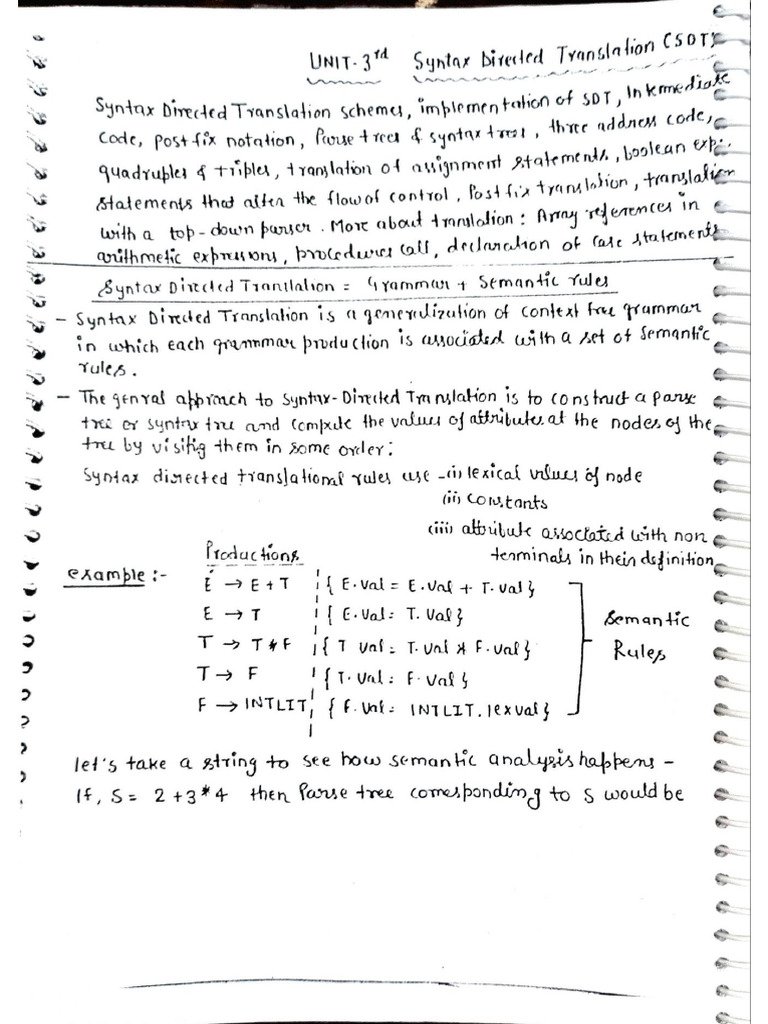 UNIT-3rd Syntax Directed Translation (SDT)
Syntax Directed Translation schemes, implementation of SDT, Intermediate
code, post fix notation, Parse trees & syntax trees, three address code,
quadruples & triples, translation of assignment statements, boolean exp.
statements that alter the flow of control, Postfix translation, translation
with a top-down parser. More about translation: Array references in
arithmetic expressions, procedures call, declaration of case statements
Syntax Directed Translation = Grammar + Semantic rules
- Syntax Directed Translation is a generalization of context free grammar
in which each grammar production is associated with a set of semantic
rules.
- The genral approach to Syntax-Directed Translation is to construct a parse
tree or syntax tree and compute the values of attributes at the nodes of the
tree by visiting them in some order:
Syntax directed translational rules use -(i) lexical values of node
(ii) constants
(iii) attribute associated with non
terminals in their definition
Productions
example :-
E → E + T { E.val = E.val + T.val }
E → T { E.val = T.val }
T → T * F { T val = T.val * F.val }
T → F { T.val = F.val }
F → INTLIT { F.val = INTLIT.lexval }
Semantic
Rules
let's take a string to see how semantic analysis happens -
If, S = 2 + 3 * 4 then Parse tree corresponding to S would be